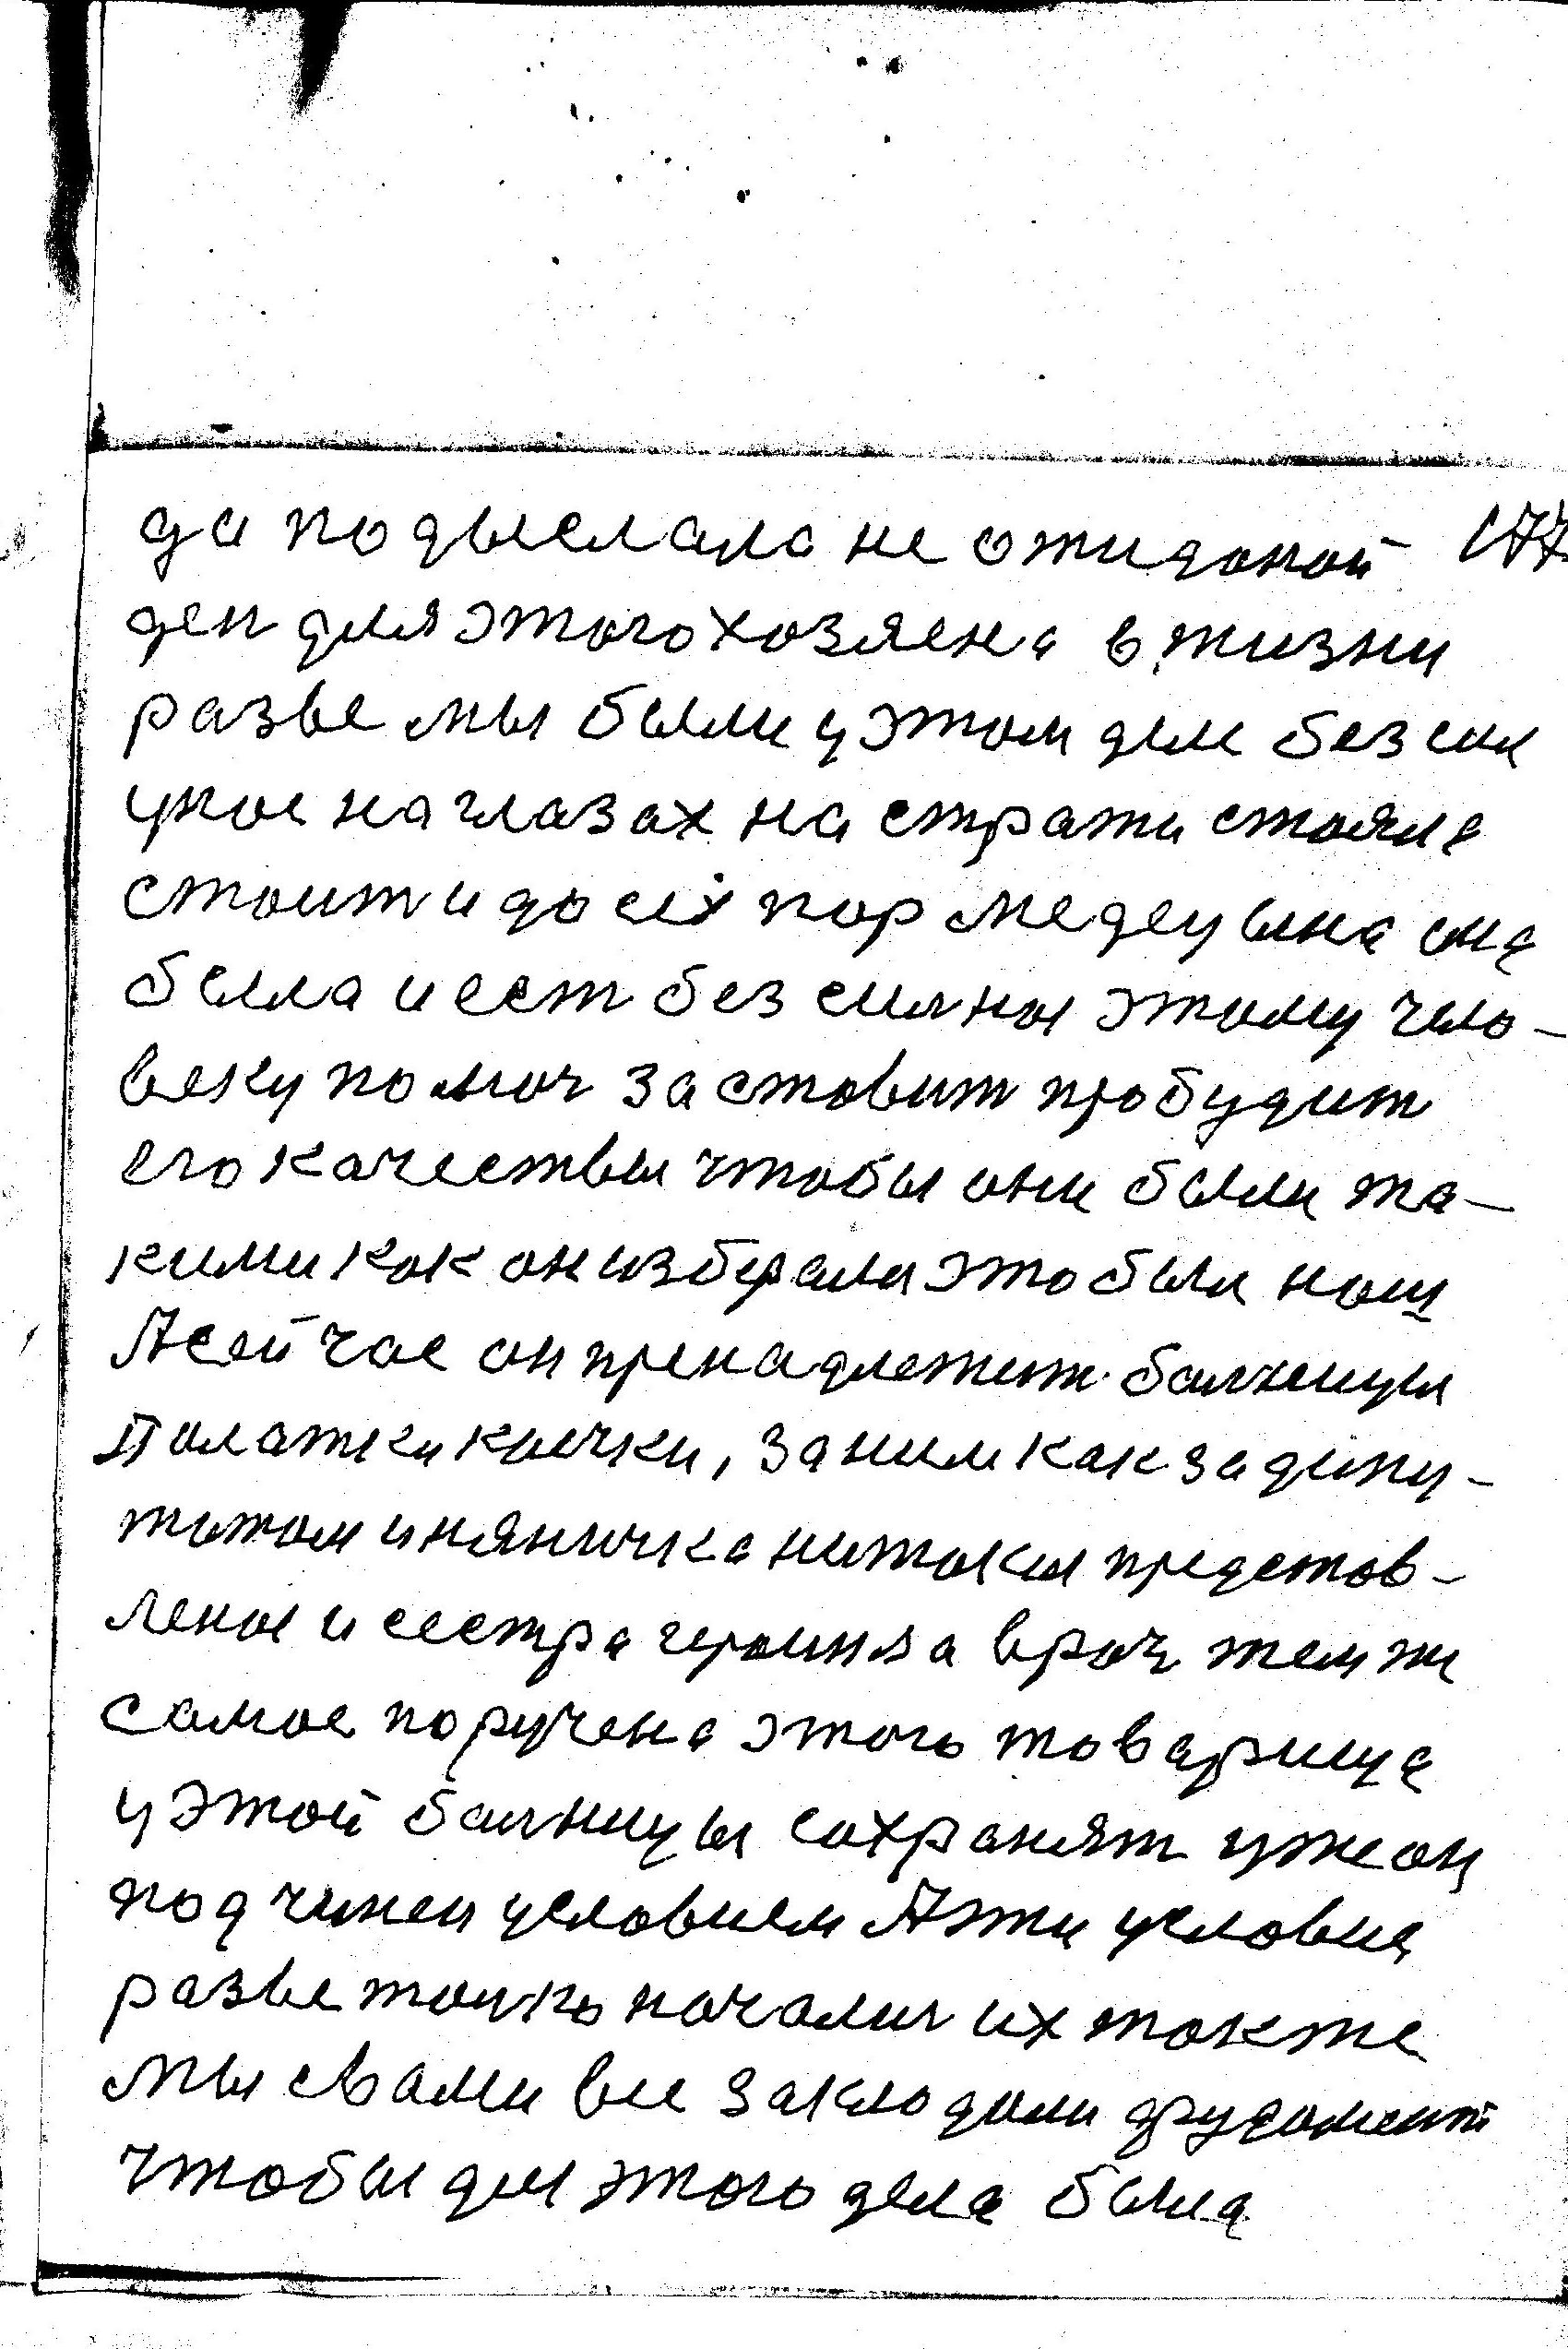 да подыслала не ожиданой 177
ден для этого хозяена в жизни
разве мы были у этом деле без сил
уное на глазах на стражи стояла
стоит и до сех пор медецына она
была и ест без силны этому чело-
веку помоч заставит пробудит
его качествы чтобы они были та-
кими как он изберала это был наш
А сейчас он пренадлежит болницы
Палатки коечки, за ним как за депу-
татом и няничка нитокы представ-
лены и сестра героиня а врач тем же
самое поручена этого товарища
у этой болницы сохранят уже он
подчинен условием А эти условия
разве толко начались их также
мы свами все закладали фундамент
чтобы для этого дела была